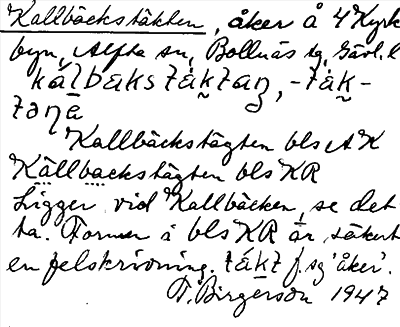 Kallbäckstäkten, åker å 4 Kyrk
byn, Alfta sn, Bollnäs tg, Gävl. l
kálbɑkstäktɑn, -täk-
tənä
Kallbäckstägten bls AK
Källbackstägten bls KR
Ligger vid Kallbäcken, se det
ta. Formen i bls KR är säkert
en felskrivning. täkt f. sg 'åker'.
T. Birgerson 1947